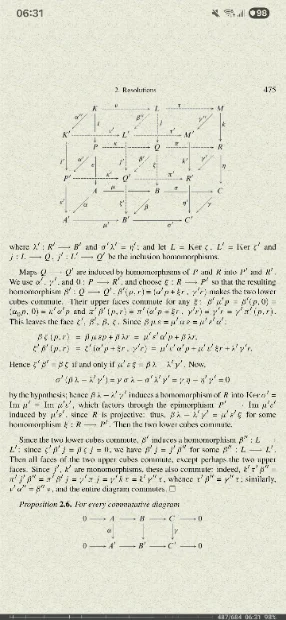 06:31
98
2. Resolutions 475
K L M
K' L' M'
P Q R
P' Q' R'
A B C
A' B' C'
where λ' : R' → B' and σ'λ' = η'; and let L = Ker ζ, L' = Ker ζ' and
j : L → Q, j' : L' → Q' be the inclusion homomorphisms.
Maps Q → Q' are induced by homomorphisms of P and R into P' and R'.
We use α', γ', and 0 : P → R', and choose ξ : R → P' so that the resulting
homomorphism β' : Q → Q',
cubes commute. Their upper faces commute for any ξ:
This leaves the face ζ', β', β, ζ. Since
βζ(p, r) = βμεp + βλr = μ'ε'α'p + βλr,
Hence ζ'β' = βζ if and only if μ'ε'ξ = βλ − λ'γ'. Now,
σ'(βλ − λ'γ') = γσλ − σ'λ'γ' = γη − η'γ' = 0
by the hypothesis; hence βλ − λ'γ' induces a homomorphism of R into Ker σ' =
Im μ' = Im μ'ε', which factors through the epimorphism P' → Im μ'ε'
induced by μ'ε', since R is projective: thus, βλ − λ'γ' = μ'ε'ξ for some
homomorphism ξ : R → P'. Then the two lower cubes commute.
Since the two lower cubes commute, β' induces a homomorphism β'' : L →
L': since ζ'β'j = βζj = 0, we have β'j = j'β'' for some β'' : L → L'.
Then all faces of the two upper cubes commute, except perhaps the two upper
faces. Since j', k' are monomorphisms, these also commute: indeed,
similarly,
and the entire diagram commutes. □
Proposition 2.6. For every commutative diagram
0 → A → B → C → 0
α γ
0 → A' → B' → C' → 0
487/684 06:31 98%